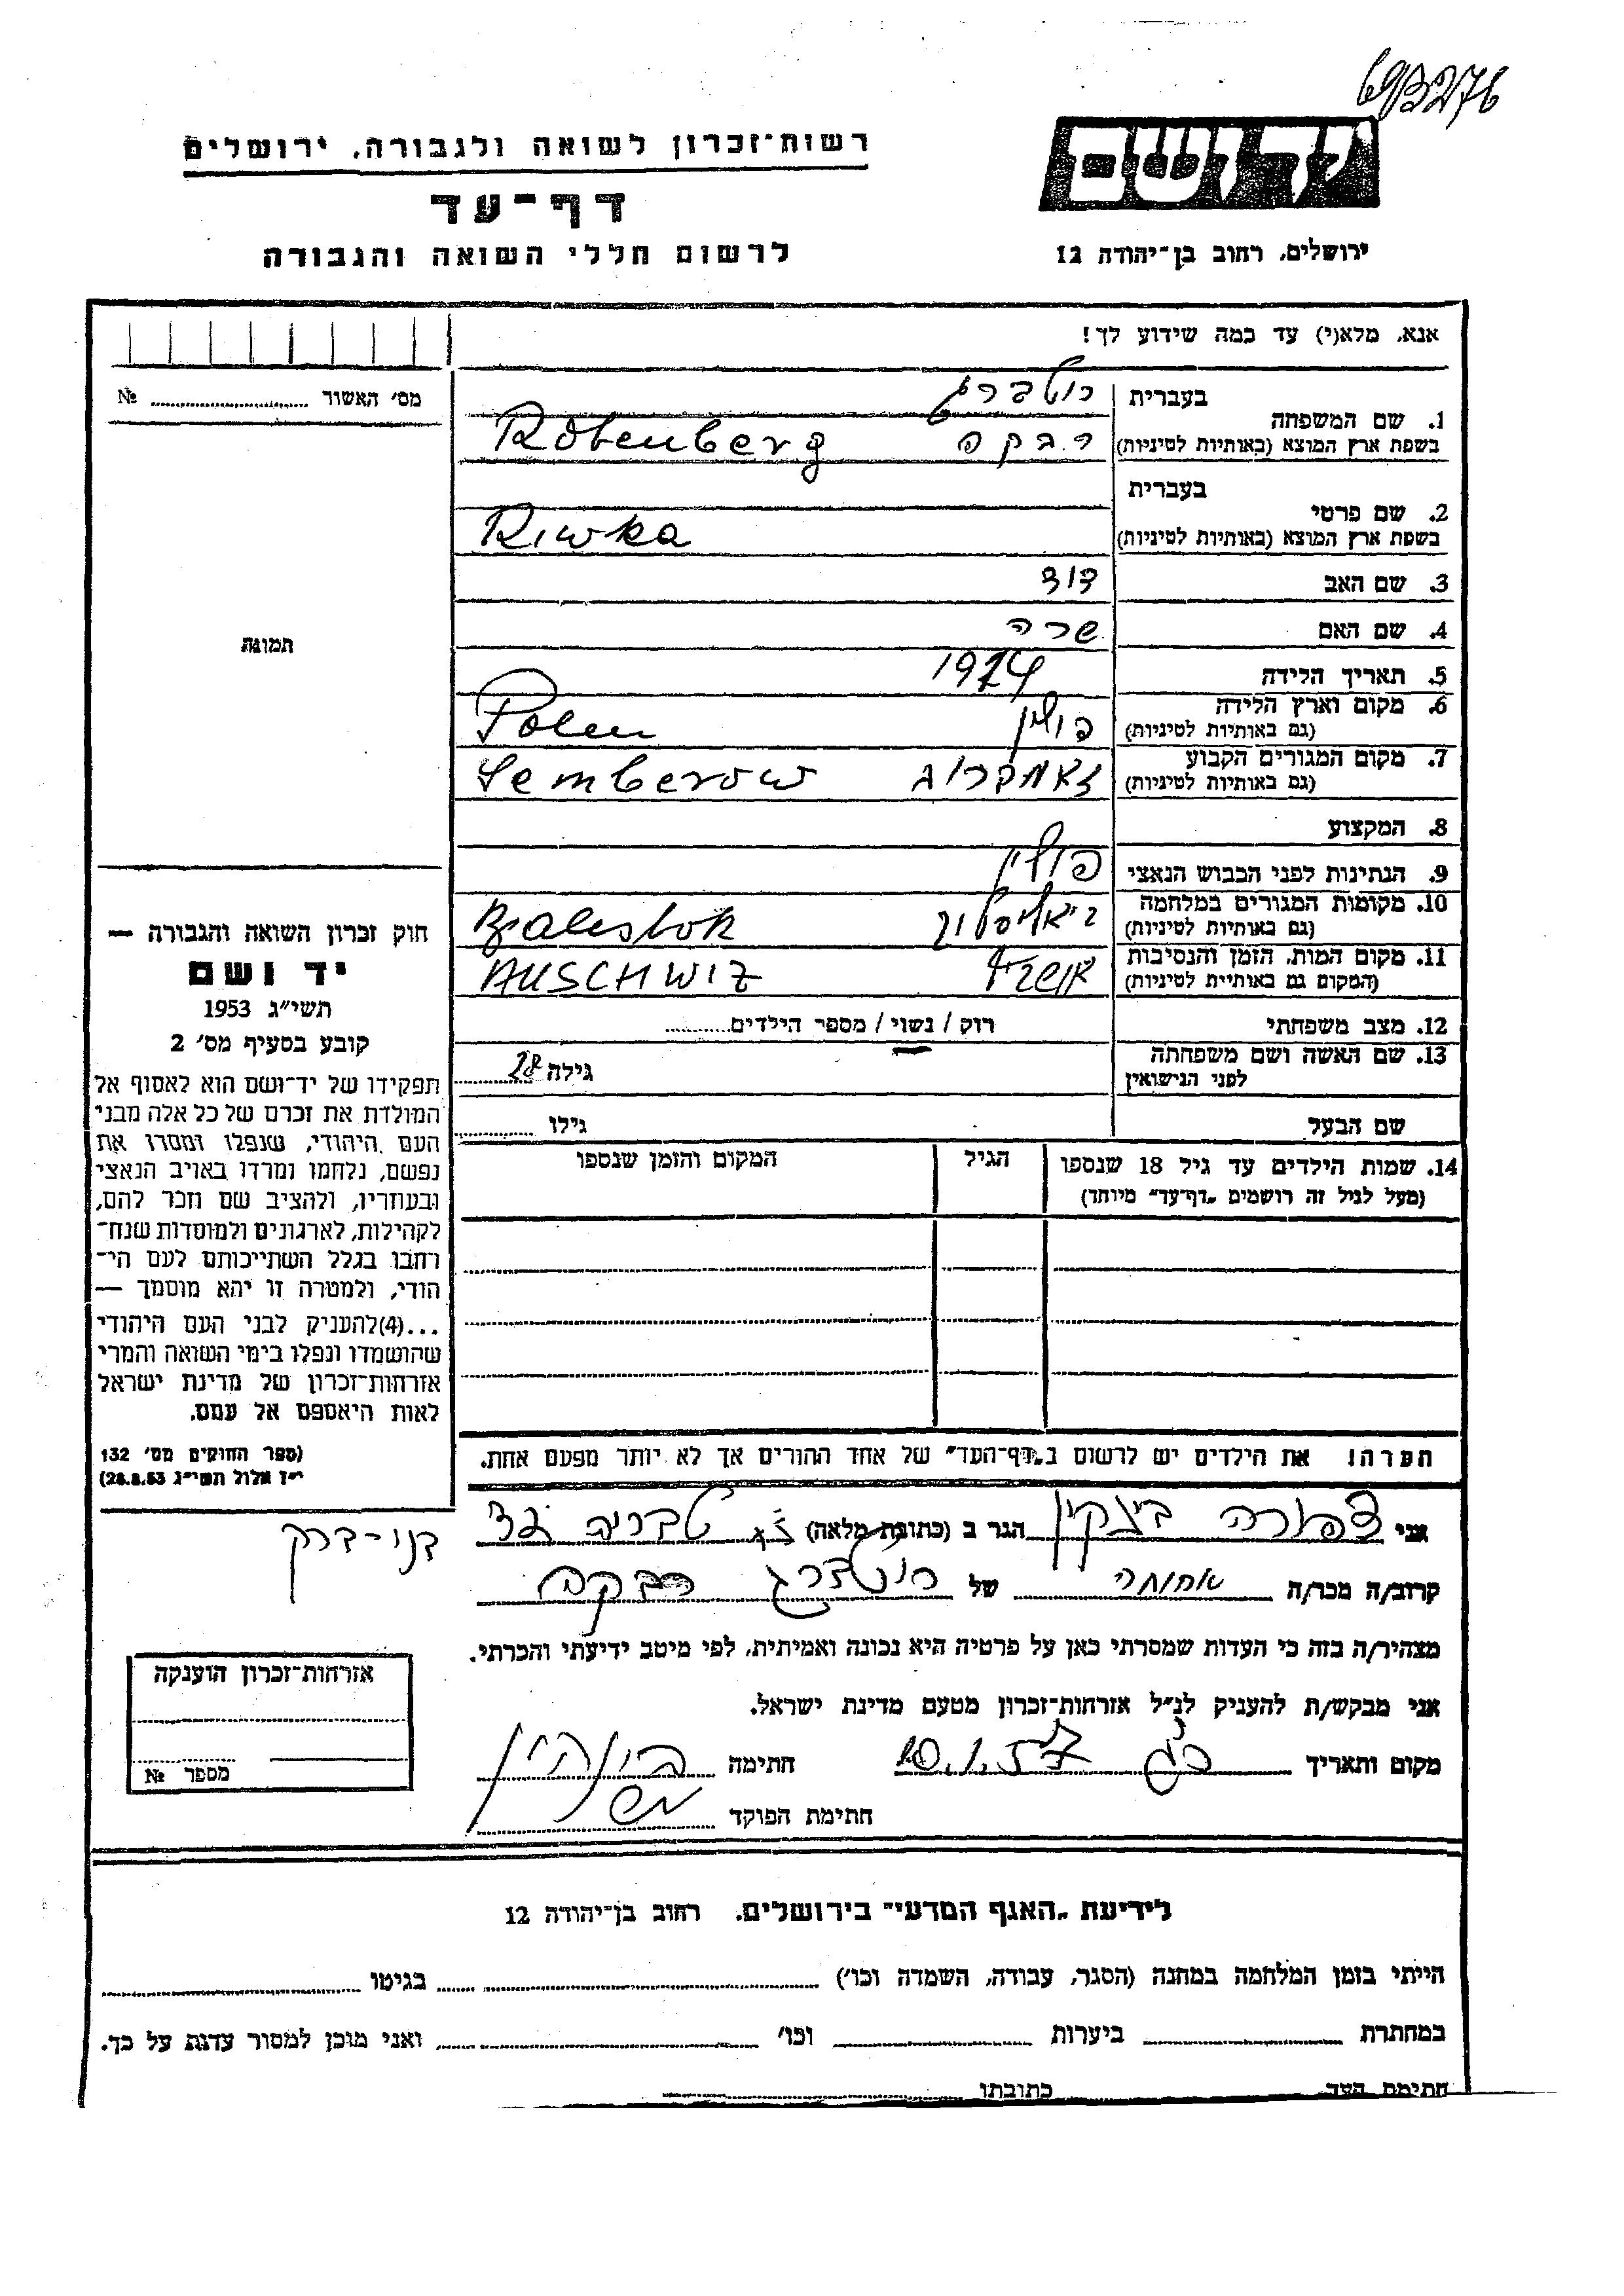 693276
רשות־זכרון לשואה ולגבורה, ירושלים
יד ושם
דף־עד
לרשום חללי השואה והגבורה
ירושלים, רחוב בן־יהודה 12
אנא, מלא(י) עד כמה שידוע לך!
מס׳ האשור № 
1. שם המשפחה בעברית רוטברג
בשפת ארץ המוצא (באותיות לטיניות) רבקה Rotenberg
2. שם פרטי בעברית
בשפת ארץ המוצא (באותיות לטיניות) Riwka
3. שם האב דוד
4. שם האם שרה
5. תאריך הלידה 1914
6. מקום וארץ הלידה (גם באותיות לטיניות) פולין Polen
7. מקום המגורים הקבוע (גם באותיות לטיניות) זאמברוב Semberow
8. המקצוע
9. הנתינות לפני הכבוש הנאצי פולין
10. מקומות המגורים במלחמה (גם באותיות לטיניות) ביאליסטוק Bialestok
11. מקום המות, הזמן והנסיבות (המקום גם באותיית לטיניות) AUSCHWIZ
12. מצב משפחתי רוק / נשוי / מספר הילדים
13. שם האשה ושם משפחתה לפני הנישואין גילה 28
שם הבעל גילו
14. שמות הילדים עד גיל 18 שנספו הגיל המקום והזמן שנספו
(מעל לגיל זה רושמים „דף־עד״ מיוחד)
תמונה
חוק זכרון השואה והגבורה —
יד ושם
תשי״ג 1953
קובע בסעיף מס׳ 2
תפקידו של יד־ושם הוא לאסוף אל
המולדת את זכרם של כל אלה מבני
העם היהודי, שנפלו ומסרו את
נפשם, נלחמו ומרדו באויב הנאצי
ובעוזריו, ולהציב שם וזכר להם,
לקהילות, לארגונים ולמוסדות שנח־
רבו בגלל השתייכותם לעם הי־
הודי, ולמטרה זו יהא מוסמך —
...(4)להעניק לבני העם היהודי
שהושמדו ונפלו בימי השואה והמרי
אזרחות־זכרון של מדינת ישראל
לאות היאספם אל עמם.
(ספר החוקים מס׳ 132
י״ז אלול תשי״ג 28.8.53)
הערה! את הילדים יש לרשום ב„דף־העד״ של אחד ההורים אך לא יותר מפעם אחת.
אני צפורה הגר ב (כתובת מלאה) טבריה
קרוב/ה מכר/ה אחותה של רוטברג רבקה
מצהיר/ה בזה כי העדות שמסרתי כאן על פרטיה היא נכונה ואמיתית, לפי מיטב ידיעתי והכרתי.
אני מבקש/ת להעניק לנ״ל אזרחות־זכרון מטעם מדינת ישראל.
מקום ותאריך 10.1.57 חתימה
חתימת הפוקד
אזרחות־זכרון הוענקה
מספר №
לידיעת „האגף המדעי״ בירושלים, רחוב בן־יהודה 12
הייתי בזמן המלחמה במחנה (הסגר, עבודה, השמדה וכו׳) בגיטו
במחתרת ביערות וכו׳ ואני מוכן למסור עדות על כך.
חתימת העד כתובתו